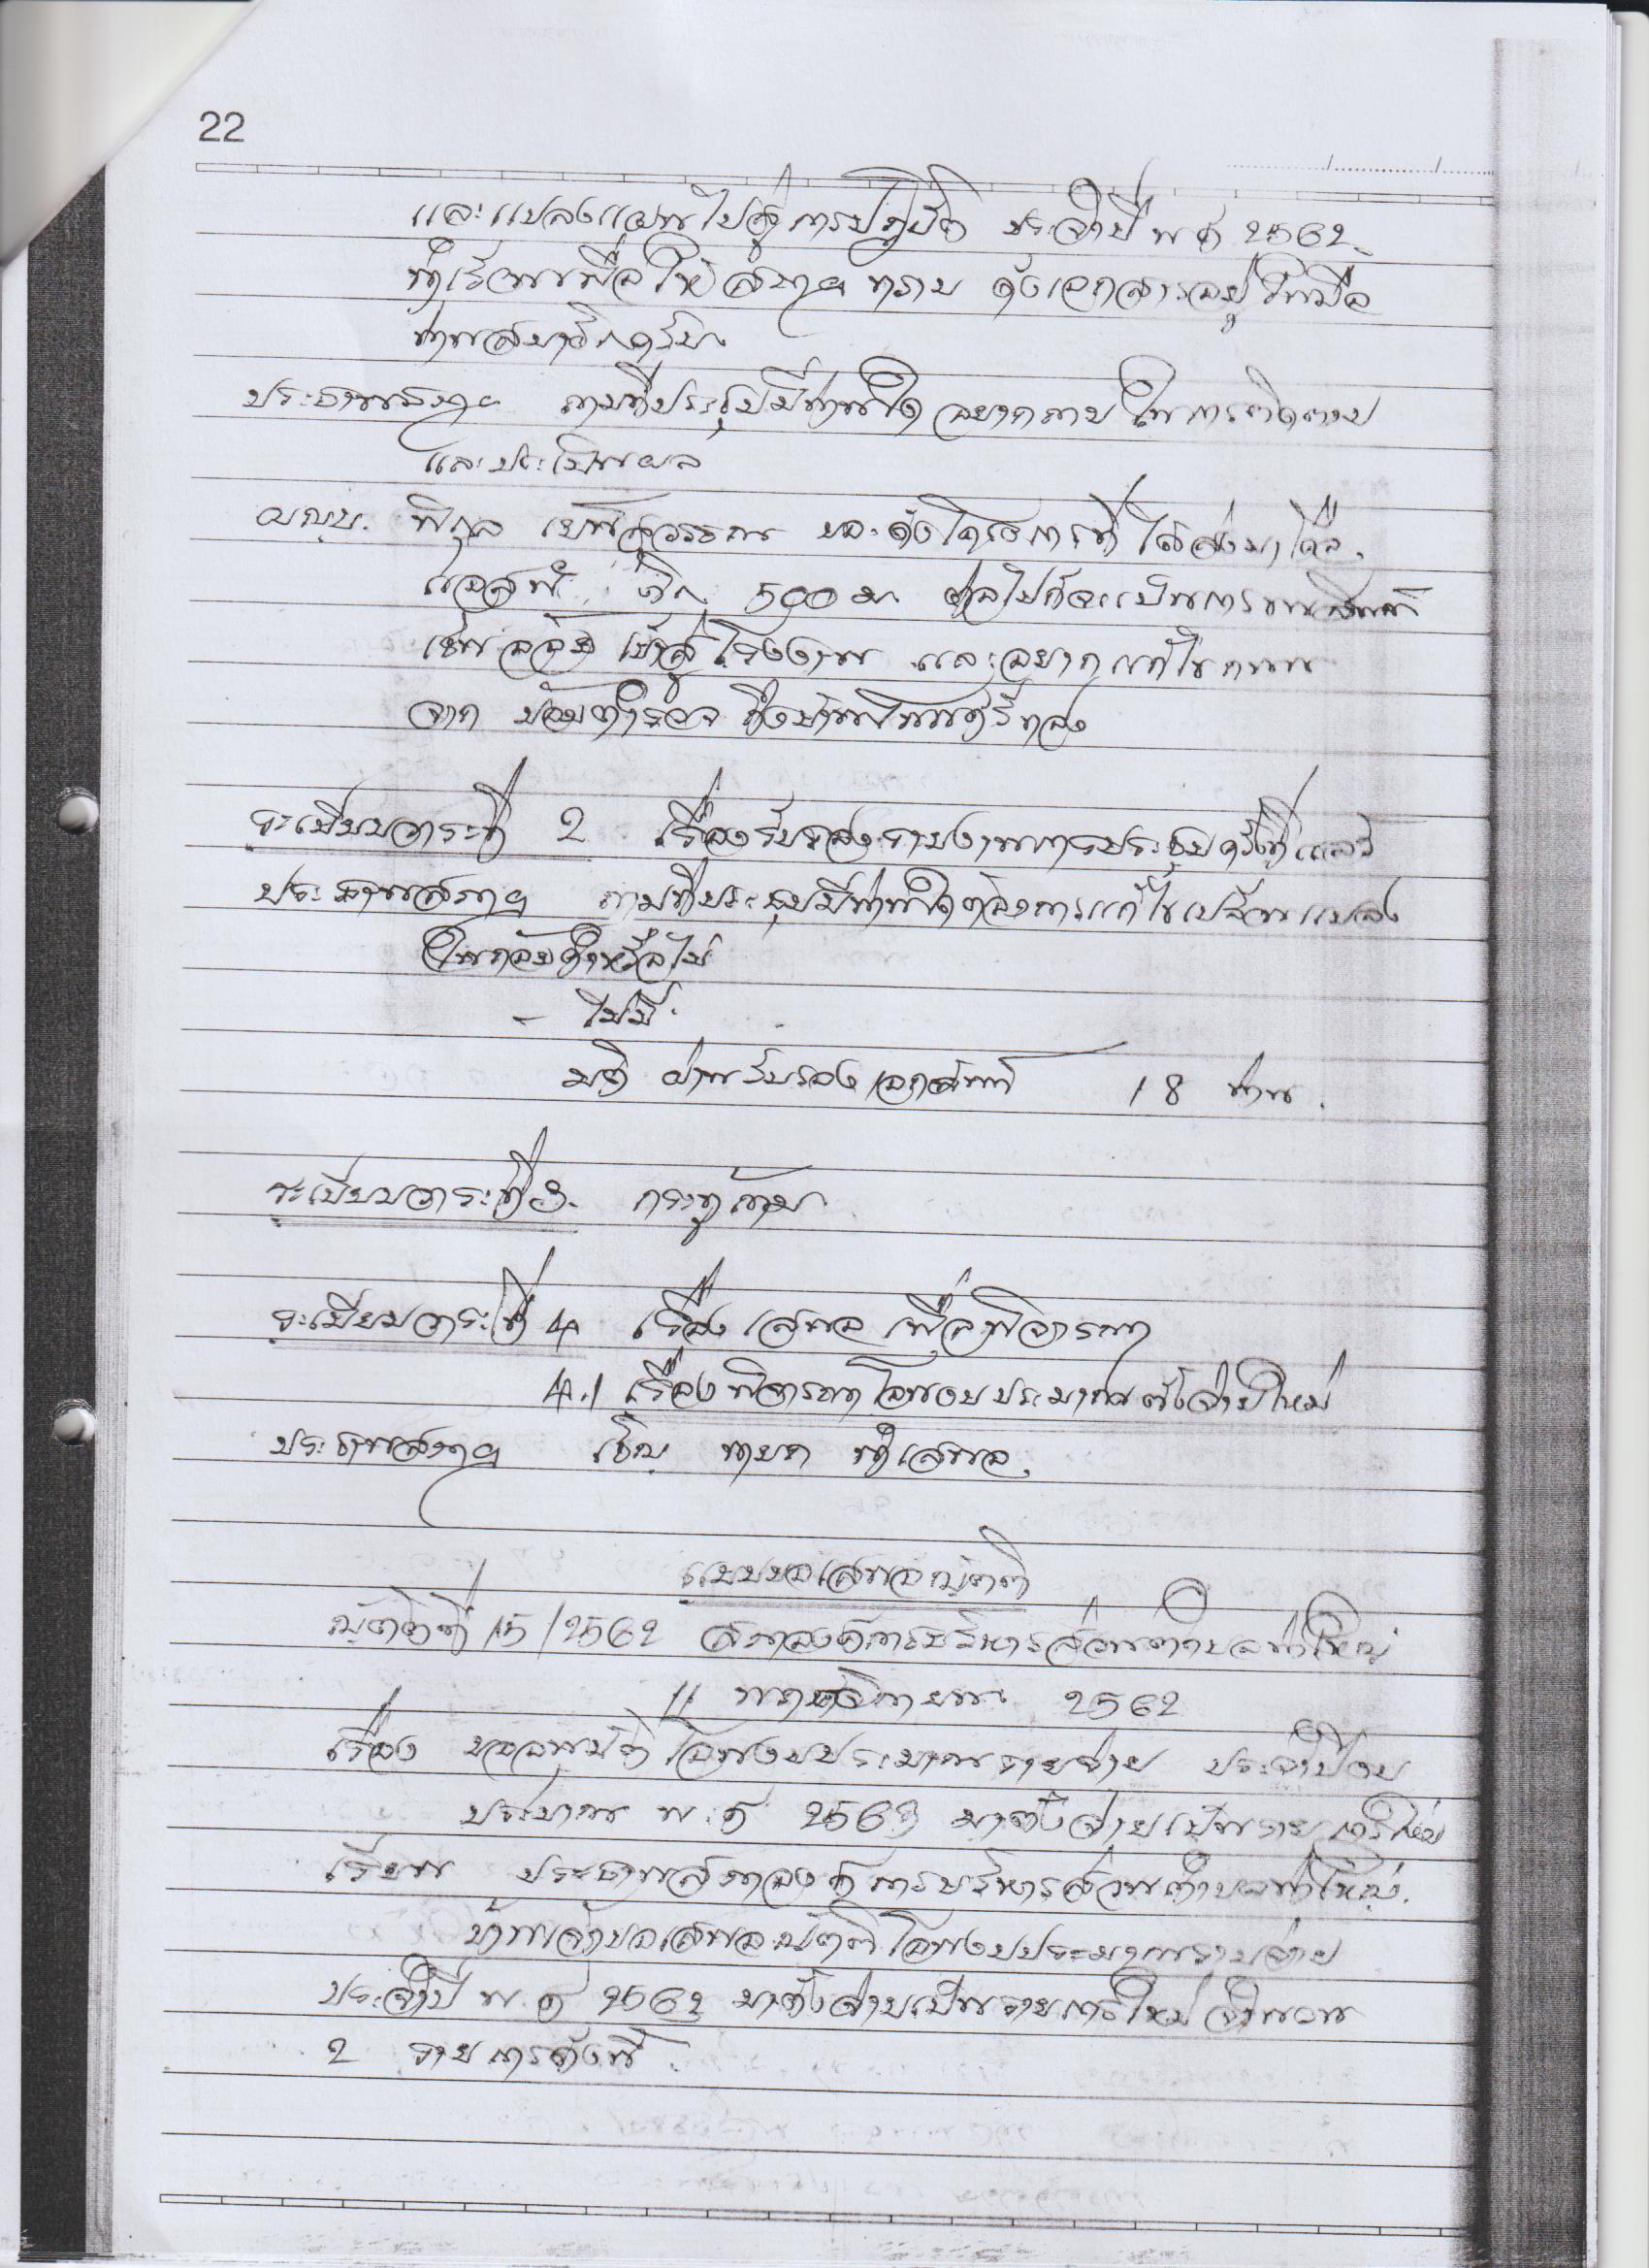 22
และแปลงแผนไปสู่การปฏิบัติ ประจำปี พ.ศ 2562
จึงเรียนเพื่อให้สภาฯ ทราบ ดังเอกสารอยู่ในมือ
ท่านสมาชิกครับ
ประธานสภาฯ ถามที่ประชุมมีท่านใด อยากถาม ในการติดตาม
และประเมินผล
ผญบ. พิกุล ขอ ดังโครงการที่ได้ส่งมา คือ
500 ม. ต่อไปก็จะเป็นการขน
อ้อย เข้าสู่โรงงาน และอยากแก้ไขถนน
จาก ป้อมตำรวจ ถึงบ้าน
ระเบียบวาระที่ 2 เรื่องรับรองรายงานการประชุมครั้งที่แล้ว
ประธานสภาฯ ถามที่ประชุมมีท่านใดต้องการแก้ไขเปลี่ยนแปลง
ในถ้อยคำหรือไม่
- ไม่มี
มติ ผ่านรับรอง เอกฉันท์ 18 ท่าน
ระเบียบวาระที่ 3. กระทู้ถาม
ระเบียบวาระที่ 4 เรื่อง เสนอ เพื่อพิจารณา
4.1 เรื่อง พิจารณา โอนงบประมาณ ตั้งจ่ายใหม่
ประธานสภาฯ เชิญ นายก ที่เสนอ
แบบขอเสนอญัตติ
ญัตติที่ 15/2562 สภาองค์การบริหารส่วนตำบลท่าใหญ่
11 พฤศจิกายน 2562
เรื่อง ขออนุมัติ โอนงบประมาณรายจ่าย ประจำปีงบ
ประมาณ พ.ศ 2563 มาตั้งจ่ายเป็นรายการใหม่
เรียน ประธานสภาองค์การบริหารส่วนตำบลท่าใหญ่
ข้าพเจ้าขอเสนอญัตติ โอนงบประมาณรายจ่าย
ประจำปี พ.ศ 2562 มาตั้งจ่ายเป็นรายการใหม่ จำนวน
2 รายการดังนี้